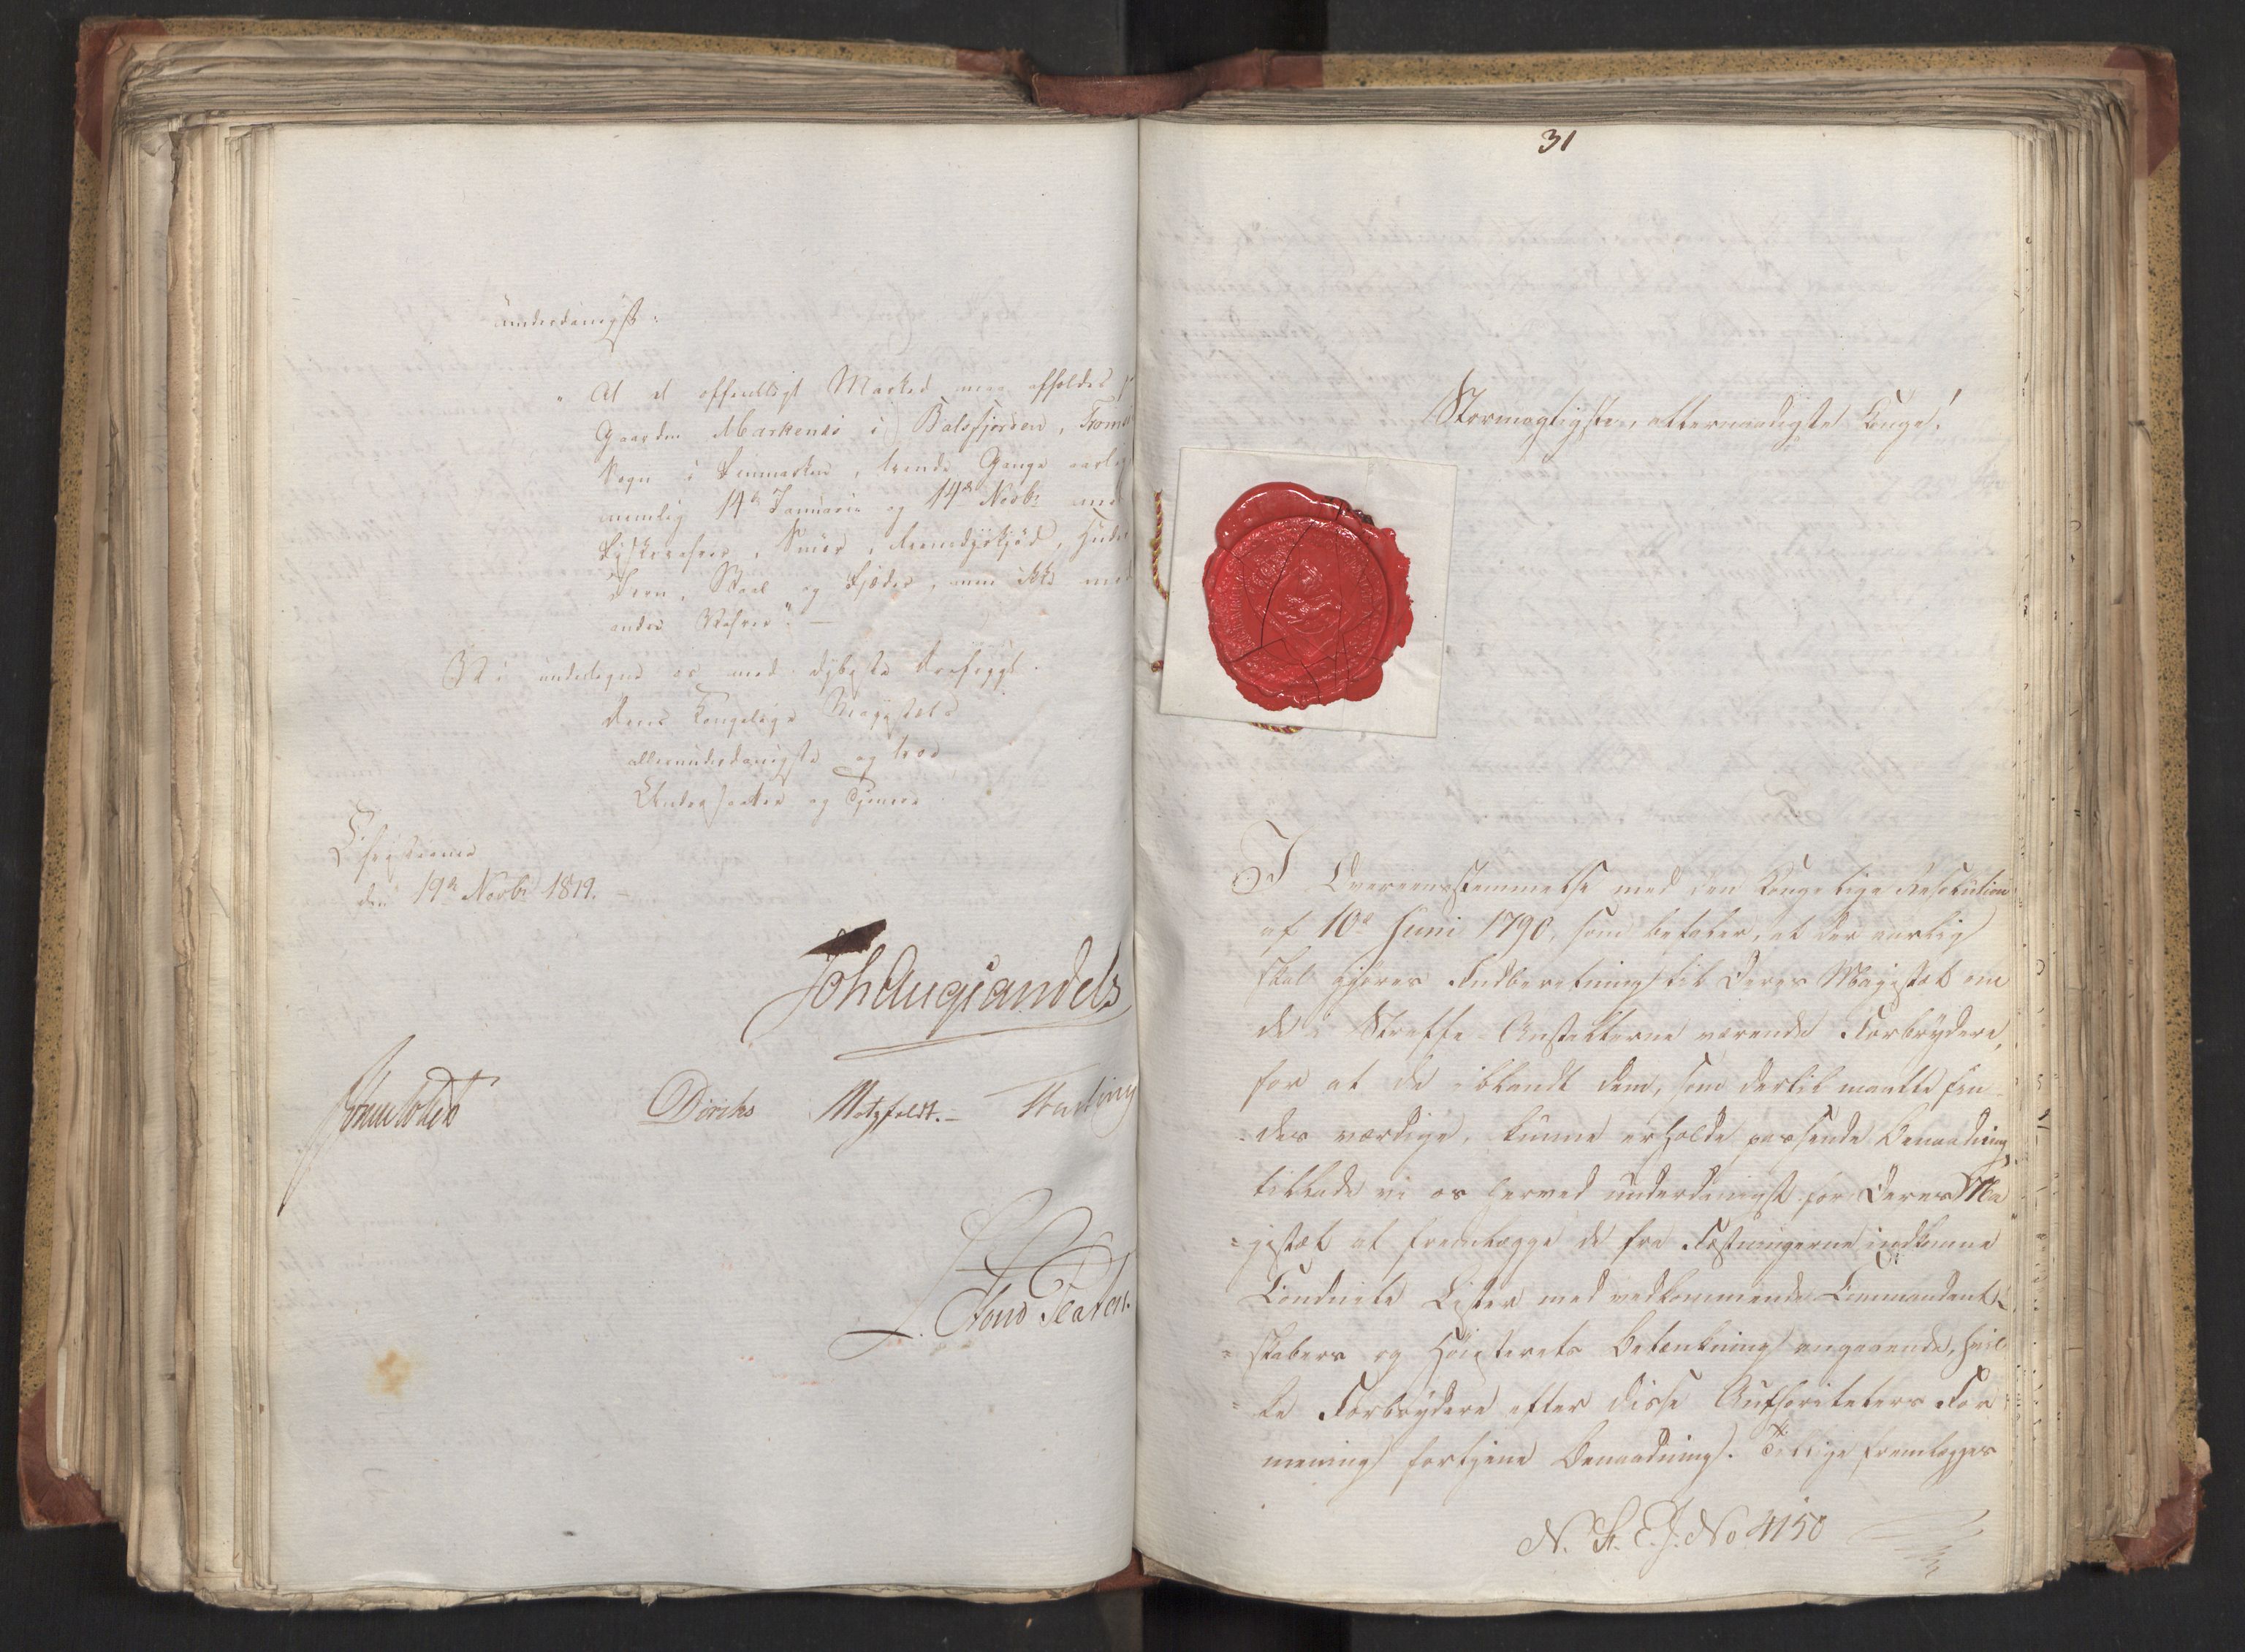 underdanigst:
"At et offentligt Marked maa afholdes
Gaarden Markenes i Balsfjorden, Tromsø
Sogn i Finmarken, tvende Gange aarlig
nemlig 14de Januarii og 14de Novbr med
Fiskevahrer, Smør, Reensdyrkjød, Huder
Horn, Skind og Fjæder, men ikke med
andre Vahrer". —
Vi undertegne os med dybeste Ærefrygt.
Deres Kongelige Majestæts
allerunderdanigste og troe
Undersaatter og Tjenere
Christiania
den 19de Novbr 1819. —
Joh Aug Sandels
Sommerhielm
Diriks Motzfeldt. —
F. Hono Platou.
31
Stormægtigste, allernaadigste Konge!
I Overeensstemmelse med den Kongelige Resolution
af 10de Juni 1790, som befaler, at der aarlig
skal gjøres Indberetning til Deres Majestæt om
de i Straffe-Anstalterne værende Forbrydere,
for at de iblandt dem, som dertil maatte fin-
=des værdige, kunne erholde passende Benaadning,
tillade vi os herved underdanigst for Deres Ma
=jestæt at fremlægge de fra Fæstningerne indkomne
Conduite Lister med vedkommende Commandant-
=skabers og Høiesterets Betænkning angaaende, hvil
=ke Forbrydere efter disse Authoriteters For
mening fortjene Benaadning. Tillige fremlægges
N. St. E. J. No 4150